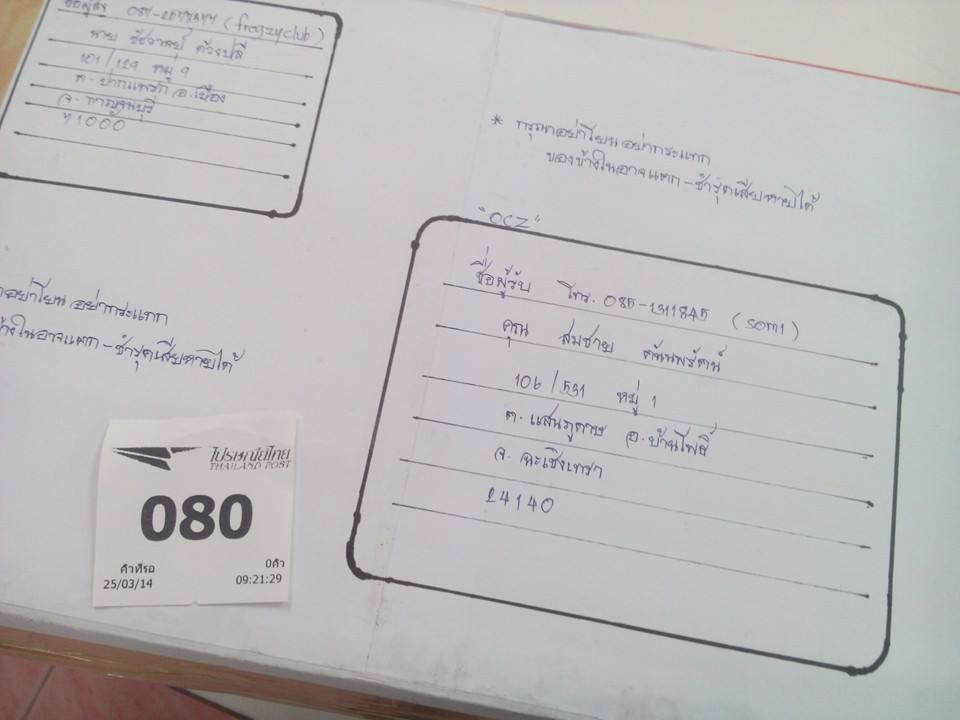 ชื่อผู้ส่ง (frogzyclub)
นาย
101/129 หมู่ 9
ต. ปากแพรก อ.เมือง
จ. กาญจนบุรี
71000
* กรุณาอย่าโยน อย่ากระแทก
ของข้างในอาจแตก-ชำรุดเสียหายได้
"OCZ"
ชื่อผู้รับ โทร. (som1)
คุณ สมชาย ตันพรัตน์
106/531 หมู่ 1
ต. แสนภูดาษ อ.บ้านโพธิ์
จ. ฉะเชิงเทรา
24140
อย่าโยน อย่ากระแทก
ข้างในอาจแตก-ชำรุดเสียหายได้
ไปรษณีย์ไทย
THAILAND POST
080
คิวที่รอ 0คิว
25/03/14 09:21:29